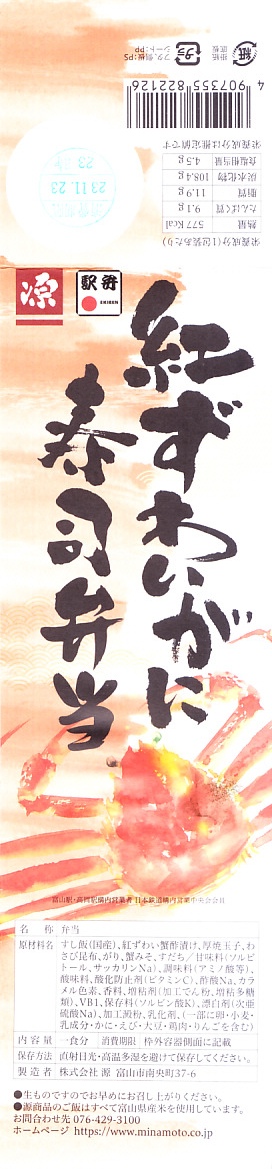 紙
外装・
底板
プラ
フタ、側板:PS
シート:PP
4 907355 822126
栄養成分(1包装あたり)
熱量 577 Kcal
たんぱく質 9.1 g
脂質 11.9 g
炭水化物 108.4 g
食塩相当量 4.5 g
栄養成分は推定値です
23.11.23
源
駅弁
EKIBEN
紅ずわいがに
寿司弁当
富山駅・高岡駅構内営業者 日本鉄道構内営業中央会会員
名 称 弁当
原材料名 すし飯(国産)、紅ずわい蟹酢漬け、厚焼玉子、わ
さび昆布、がり、蟹みそ、すだち/甘味料(ソルビ
トール、サッカリンNa)、調味料(アミノ酸等)、
酸味料、酸化防止剤(ビタミンC)、酢酸Na、カラ
メル色素、香料、増粘剤(加工でん粉、増粘多糖
類)、VB1、保存料(ソルビン酸K)、漂白剤(次亜
硫酸Na)、加工澱粉、乳化剤、(一部に卵・小麦・
乳成分・かに・えび・大豆・鶏肉・りんごを含む)
内 容 量 一食分 消費期限 枠外容器側面に記載
保存方法 直射日光・高温多湿を避けて保存してください。
製 造 者 株式会社 源 富山市南央町37-6
●生ものですのでお早めにお召し上りください。
●源商品のご飯はすべて富山県産米を使用しています。
お問合わせ先 076-429-3100
ホームページ https://www.minamoto.co.jp